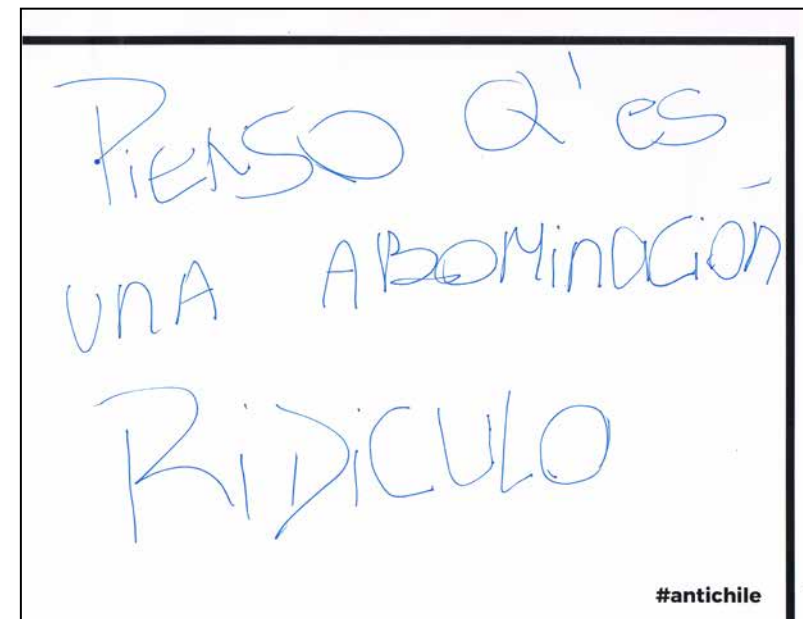 PiENSO Q' es
UnA ABOMinACiÓn
RiDiCULO
#antichile